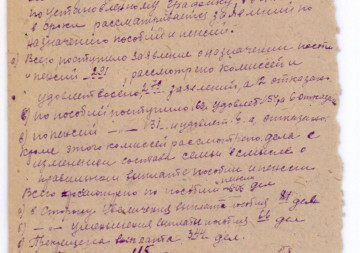 по установленному графику
в сроки рассматривается заявлений по
назначению пособий и пенсий.
а) Всего поступило заявление о назначение пособи
и пенсий 221 рассмотрено комиссией и
удовлетворено заявлений, а 12 отказано
б) по пособий поступило удовлет. 54 а 6 отказано
в) по пенсий удовлет. а отказано.
Кроме этого комиссией рассмотрено дела с
изменении состава семьи и смысле о
правильном выплате пособий и пенсии
Всего просмотрено по пособий пенсии дел
а) в сторону увеличения выплата пособия 81 дел
б) уменьшения выплаты пособия 66 дел
в) Прекращена выплата 324 дел.